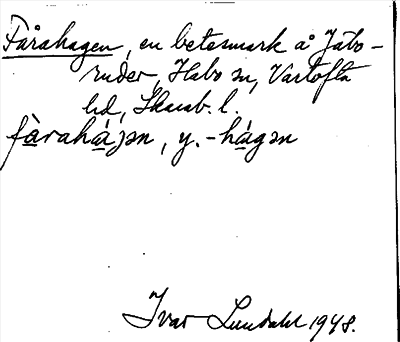 Fårahagen, en betesmark å Jäbo-
ruder, Habo sn, Vartofta
hd, Skarab. l.
fàrahá̱jən, y. -há̱gən
Ivar Lundahl 1948.